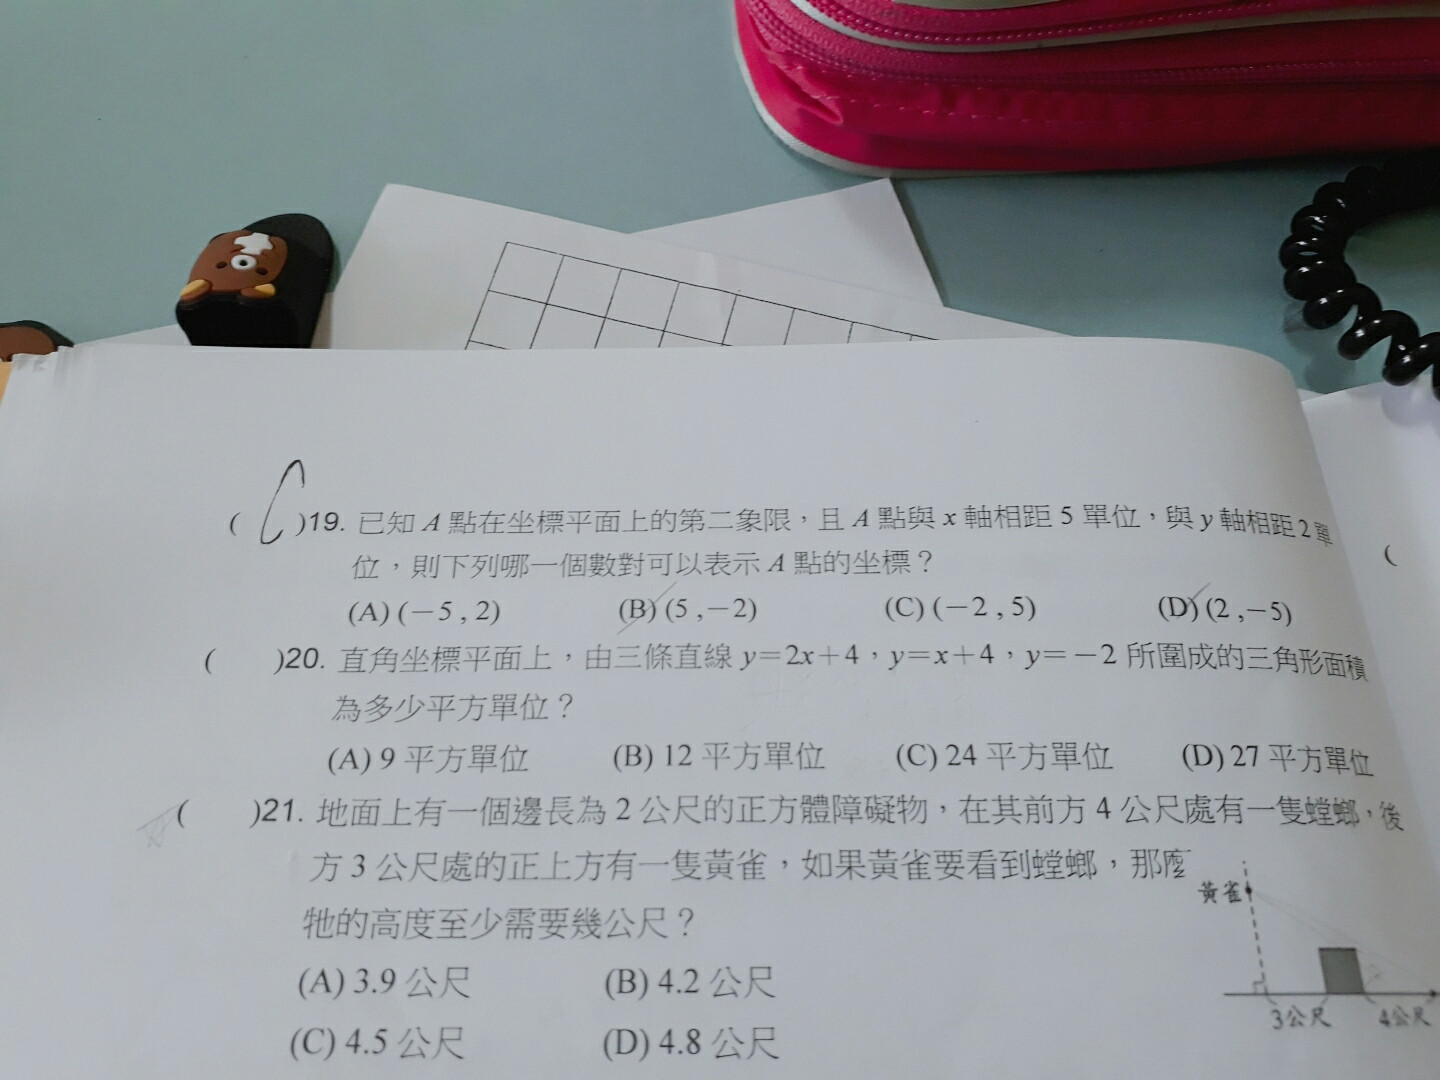 ( C )19. 已知 A 點在坐標平面上的第二象限，且 A 點與 x 軸相距 5 單位，與 y 軸相距 2 單
位，則下列哪一個數對可以表示 A 點的坐標？
(A) (－5 , 2) (B) (5 ,－2) (C) (－2 , 5) (D) (2 ,－5)
( )20. 直角坐標平面上，由三條直線 y=2x+4，y=x+4，y=－2 所圍成的三角形面積
為多少平方單位？
(A) 9 平方單位 (B) 12 平方單位 (C) 24 平方單位 (D) 27 平方單位
( )21. 地面上有一個邊長為 2 公尺的正方體障礙物，在其前方 4 公尺處有一隻螳螂，後
方 3 公尺處的正上方有一隻黃雀，如果黃雀要看到螳螂，那麼
牠的高度至少需要幾公尺？
(A) 3.9 公尺 (B) 4.2 公尺
(C) 4.5 公尺 (D) 4.8 公尺
黃雀
3公尺 4公尺
(